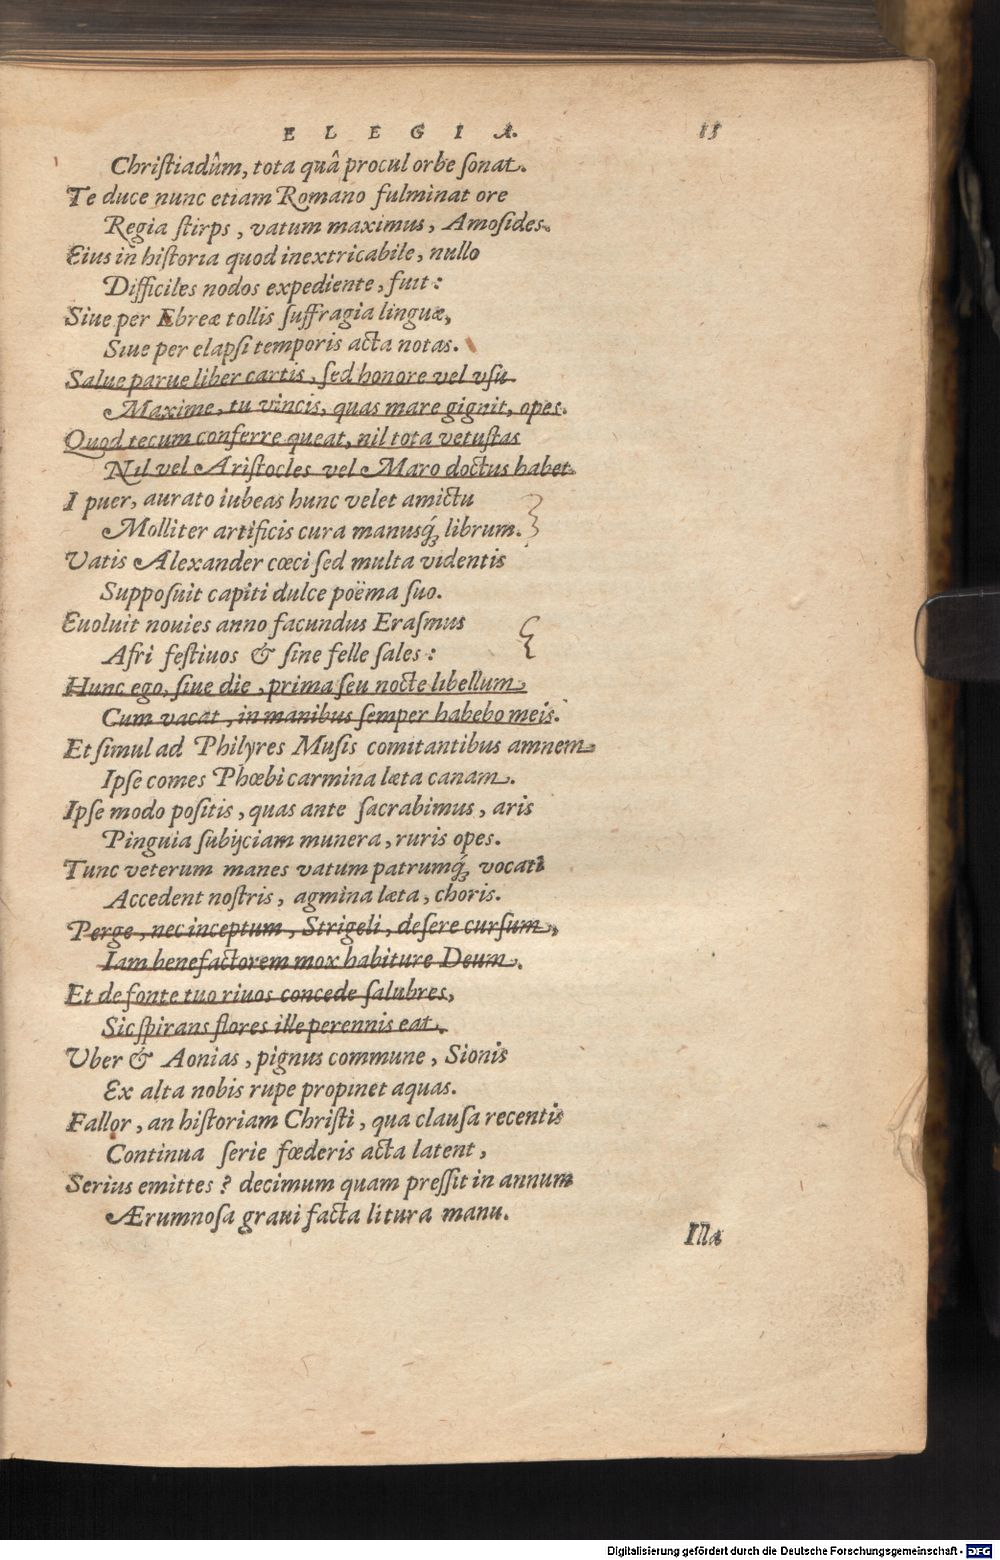 ELEGIA. 15
Chriſtiadûm, tota quâ procul orbe ſonat.
Te duce nunc etiam Romano fulminat ore
Regia ſtirps, vatum maximus, Amoſides.
Eius in hiſtoria quod inextricabile, nullo
Difficiles nodos expediente, fuit:
Siue per Ebreæ tollis ſuffragia linguæ,
Siue per elapſi temporis acta notas.
Salue parue liber cartis, ſed honore vel vſu
Maxime, tu vincis, quas mare gignit, opes.
Quod tecum conferre queat, nil tota vetuſtas
Nil vel Ariſtocles vel Maro doctus habet.
I puer, aurato iubeas hunc velet amictu
Molliter artificis cura manusq́; librum.
Vatis Alexander cœci ſed multa videntis
Suppoſuit capiti dulce poëma ſuo.
Euoluit nouies anno facundus Eraſmus
Afri feſtiuos & ſine felle ſales:
Hunc ego, ſiue die, prima ſeu nocte libellum,
Cum vacat, in manibus ſemper habebo meis.
Et ſimul ad Philyres Muſis comitantibus amnem
Ipſe comes Phœbi carmina læta canam.
Ipſe modo poſitis, quas ante ſacrabimus, aris
Pinguia ſubijciam munera, ruris opes.
Tunc veterum manes vatum patrumq́; vocati
Accedent noſtris, agmina læta, choris.
Perge, nec inceptum, Strigeli, deſere curſum,
Iam benefactorem mox habiture Deum.
Et de fonte tuo riuos concede ſalubres,
Sic ſpirans flores ille perennis eat.
Vber & Aonias, pignus commune, Sionis
Ex alta nobis rupe propinet aquas.
Fallor, an hiſtoriam Chriſti, qua clauſa recentis
Continua ſerie fœderis acta latent,
Serius emittes? decimum quam preſſit in annum
Ærumnoſa graui facta litura manu.
Illa
Digitalisierung gefördert durch die Deutsche Forschungsgemeinschaft - DFG